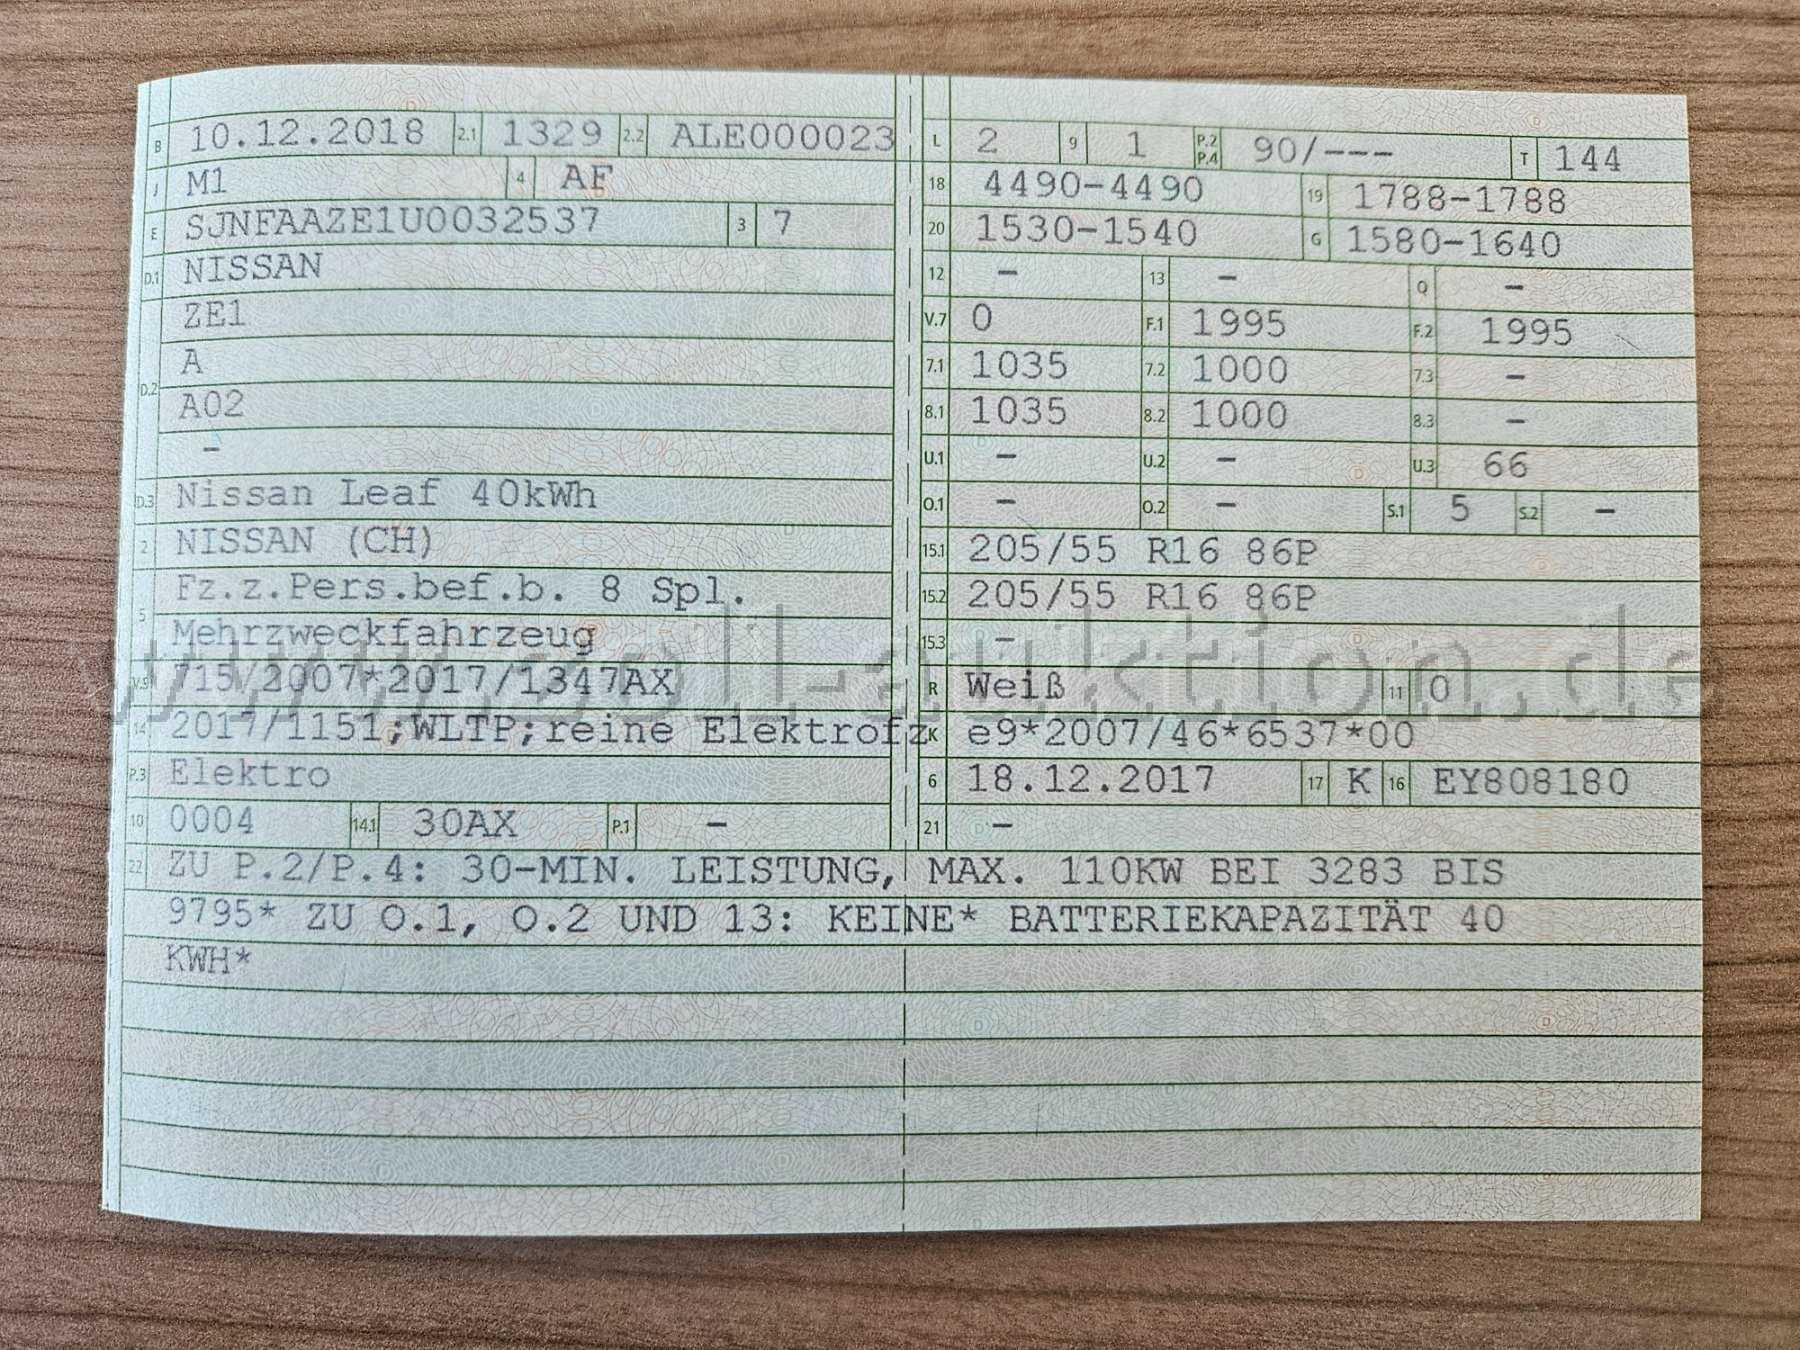 B 10.12.2018 2.1 1329 2.2 ALE000023
J M1 4 AF
E SJNFAAZE1U0032537 3 7
D.1 NISSAN
ZE1
D.2 A
A02
–
D.3 Nissan Leaf 40kWh
2 NISSAN (CH)
5 Fz.z.Pers.bef.b. 8 Spl.
Mehrzweckfahrzeug
V.9 715/2007*2017/1347AX
14 2017/1151;WLTP;reine Elektrofz
P.3 Elektro
10 0004 14.1 30AX P.1 –
L 2 9 1 P.2 P.4 90/--- T 144
18 4490-4490 19 1788-1788
20 1530-1540 G 1580-1640
12 – 13 – Q –
V.7 0 F.1 1995 F.2 1995
7.1 1035 7.2 1000 7.3 –
8.1 1035 8.2 1000 8.3 –
U.1 – U.2 – U.3 66
O.1 – O.2 – S.1 5 S.2 –
15.1 205/55 R16 86P
15.2 205/55 R16 86P
15.3 –
R Weiß 11 0
K e9*2007/46*6537*00
6 18.12.2017 17 K 16 EY808180
21 –
22 ZU P.2/P.4: 30-MIN. LEISTUNG, MAX. 110KW BEI 3283 BIS
9795* ZU O.1, O.2 UND 13: KEINE* BATTERIEKAPAZITÄT 40
KWH*
www.zoll-auktion.de